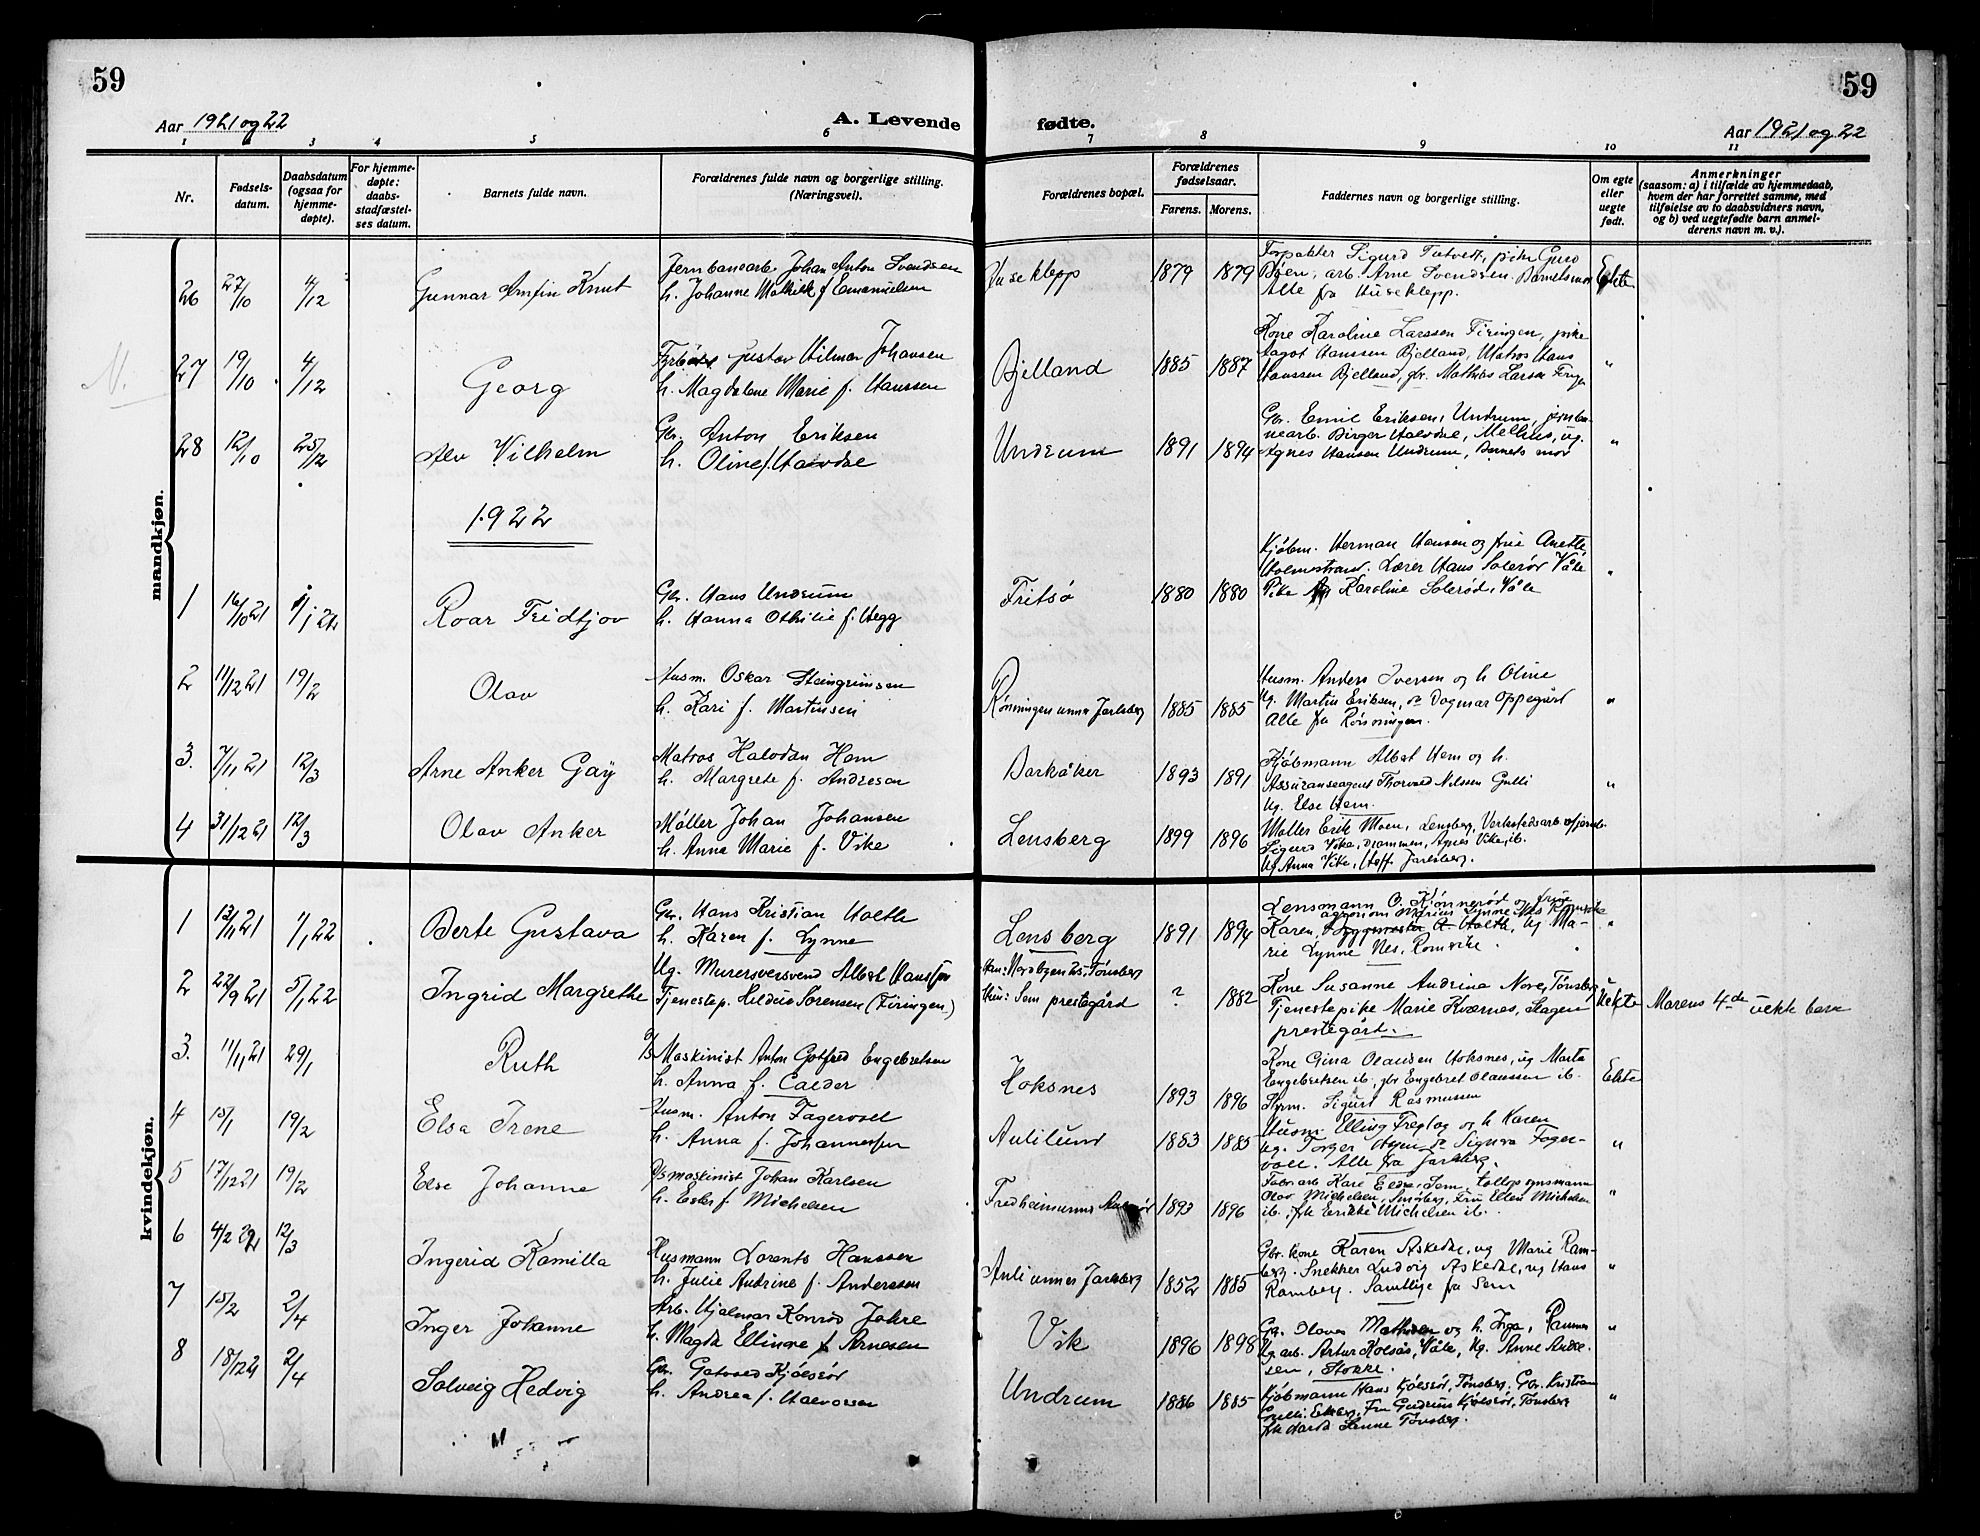 59
59
Aar 1921 og 22
A. Levende
fødte.
Aar 1921 og 22
1 2 3 4 5 6 7 8 9 10 11
Nr.
Fødsels-
datum.
Daabsdatum
(ogsaa for
hjemme-
døpte).
For hjemme-
døpte:
daabs-
stadfæstel-
ses datum.
Barnets fulde navn.
Forældrenes fulde navn og borgerlige stilling.
(Næringsvei).
Forældrenes bopæl.
Forældrenes
fødselsaar.
Farens. Morens.
Faddernes navn og borgerlige stilling.
Om egte
eller
uegte
født.
Anmerkninger
(saasom: a) i tilfælde av hjemmedaab,
hvem der har forrettet samme, med
tilføielse av to daabsvidners navn,
og b) ved uegtefødte barn anmel-
derens navn m. v.).
mandkjøn.
26 27/10 4/12 Gunnar Arnfin Knut
Jernbanearb. Johan Anton Svendsen
h. Johanne Mathilde f. Emanuelsen
Huseklepp 1879 1879
Forpakter Sigurd Tutvett, pike Guro
Bøen, arb. Arne Svendsen. Barnets mor
Alle fra Huseklepp.
Egte
N.
27 19/10 4/12 Georg
Fyrbøter Gustav Hilmar Johansen
h. Magdalene Marie f. Hanssen
Bjelland 1885 1887
Kone Karoline Larssen Firingen, pike
Aagot Hanssen Bjelland, Matros Hans
Hanssen Bjelland, gbr. Mathias Larsen
"
28 12/10 25/12 Alv Vilhelm
Gbr. Anton Eriksen
h. Oline f. Halvdal
Undrum 1891 1894
Gbr. Emil Eriksen, Undrum, jernba-
nearb. Birger Halvdal, Melhus, ug.
Agnes Hansen Undrum, Barnets mor
"
1922
1 16/10 21 1/1 22 Roar Fridtjov
Gbr. Hans Undrum
h. Hanna Othilie f. Hegg
Fritsø 1880 1880
Kjøbm. Herman Hansen og frue Anette
Holmestrand. Lærer Hans Solerød Våle
Pike Karoline Solerød, Våle
"
2 11/12 21 19/2 Olav
Husm. Oskar Steingrimsen
h. Kari f. Martinsen
Rønningen unner Jarlsberg 1885 1885
Husm. Anders Iversen og h Oline
Ug. Martin Eriksen, Dagmar Oppegård
Alle fra Rønningen.
"
3. 7/11 21 12/3 Arne Anker Gay
Matros Halvdan Hem
h. Margrete f. Andresen
Barkåker 1893 1891
Kjøbmann Albert Hem og h.
Assuranseagent Thorvald Nilssen Gulli
Ug. Else Hem.
"
4 31/12 21 12/3 Olav Anker
Møller Johan Johansen
h. Anna Marie f. Vike
Lensberg 1899 1896
Møller Erik Moen, Lensberg, Verkstedsarb.
Sigurd Vike, Drammen, Agnes Vike, ib.
Ug Anna Vike, Jarlsberg.
kvindekjøn.
1 13/11 21 1/1 22 Berte Gustava
Gbr. Hans Kristian Holth
h. Karen f. Lynne
Lensberg 1891 1894
Lensmann O. Kjønnerød og frue
agronom Marius Lynne Nes Romerike
Karen, Byggmester A Holth, Ug. Ma-
rie Lynne Nes, Romerike.
"
2 22/9 21 5/1 22 Ingrid Margrethe
Ug. Murersversvend Albert Hanssen
Tjenestep. Hilda Sørensen (Firingen)
Han: Nordbyen 25, Tønsberg
Hun: Sem prestegård
? 1882
Kone Susanne Andrina More, Tønsberg
Tjenestepike Marie Kværnes, Slagen
prestegård.
Uekte Morens 4de uekte barn
3. 11/11 21 29/1 Ruth
D/S Maskinist Anton Gotfred Engebretsen
h. Anna f. Calder
Hoksnes 1893 1896
Kone Gina Olaussen Hoksnes, ug Marta
Engebretsen ib., gbr Engebret Olaussen ib.
Styrm. Sigurd Rasmussen
Ekte
4 15/1 19/2 Elsa Irene
Husm. Anton Fagervoll
h. Anna f. Johannessen
Aulilund 1883 1885
Husm. Elling Freplag og h Karen
Ug. Torger Signora Fager-
voll. Alle fra Jarlsberg.
"
5 17/12 21 19/2 Else Johanne
D/S maskinist Johan Karlsen
h. Ester f Michelsen
Fredheim unner Aulerød 1893 1896
Fabr.arb. Kari Elde, Sem, tollopsynsmann
Olav Michelsen, Småberg, Fru Ellen Michelsen
ib., frk Erikke Michelsen ib.
"
6 4/2 22 12/3 Ingerid Kamilla
Husmann Lorents Hanssen
h. Julie Andrine f. Anderssen
Auli unner Jarlsberg 1852 1885
Gbr. kone Karen Askedal, ug Marie Ram-
berg. Snekker Ludvig Askedal, ug Hans
Ramberg. Samtlige fra Sem
"
7 15/2 2/4 Inger Johanne
Arb. Hjalmar Konrad Jahre
h. Magda Ellinore f Arnesen
Vik 1896 1898
Gbr. Olaves Mathisen og h. Inga, Ramnes
Ug arb. Artur Kolsås, Våle, Ug. Anne Andre-
sen, Stokke.
"
8 18/12 21 2/4 Solveig Hedvig
Gbr. Gotvald Kjølsrød
h. Andrea f. Halvorsen
Undrum 1886 1885
Kjøbmann Hans Kjølsrød, Tønsberg, Gbr. Kristian
Gulli. Eikberg, Fru Gudrun Kjølsrød, Tønsberg
frk Harda Lenne Tønsberg.
"